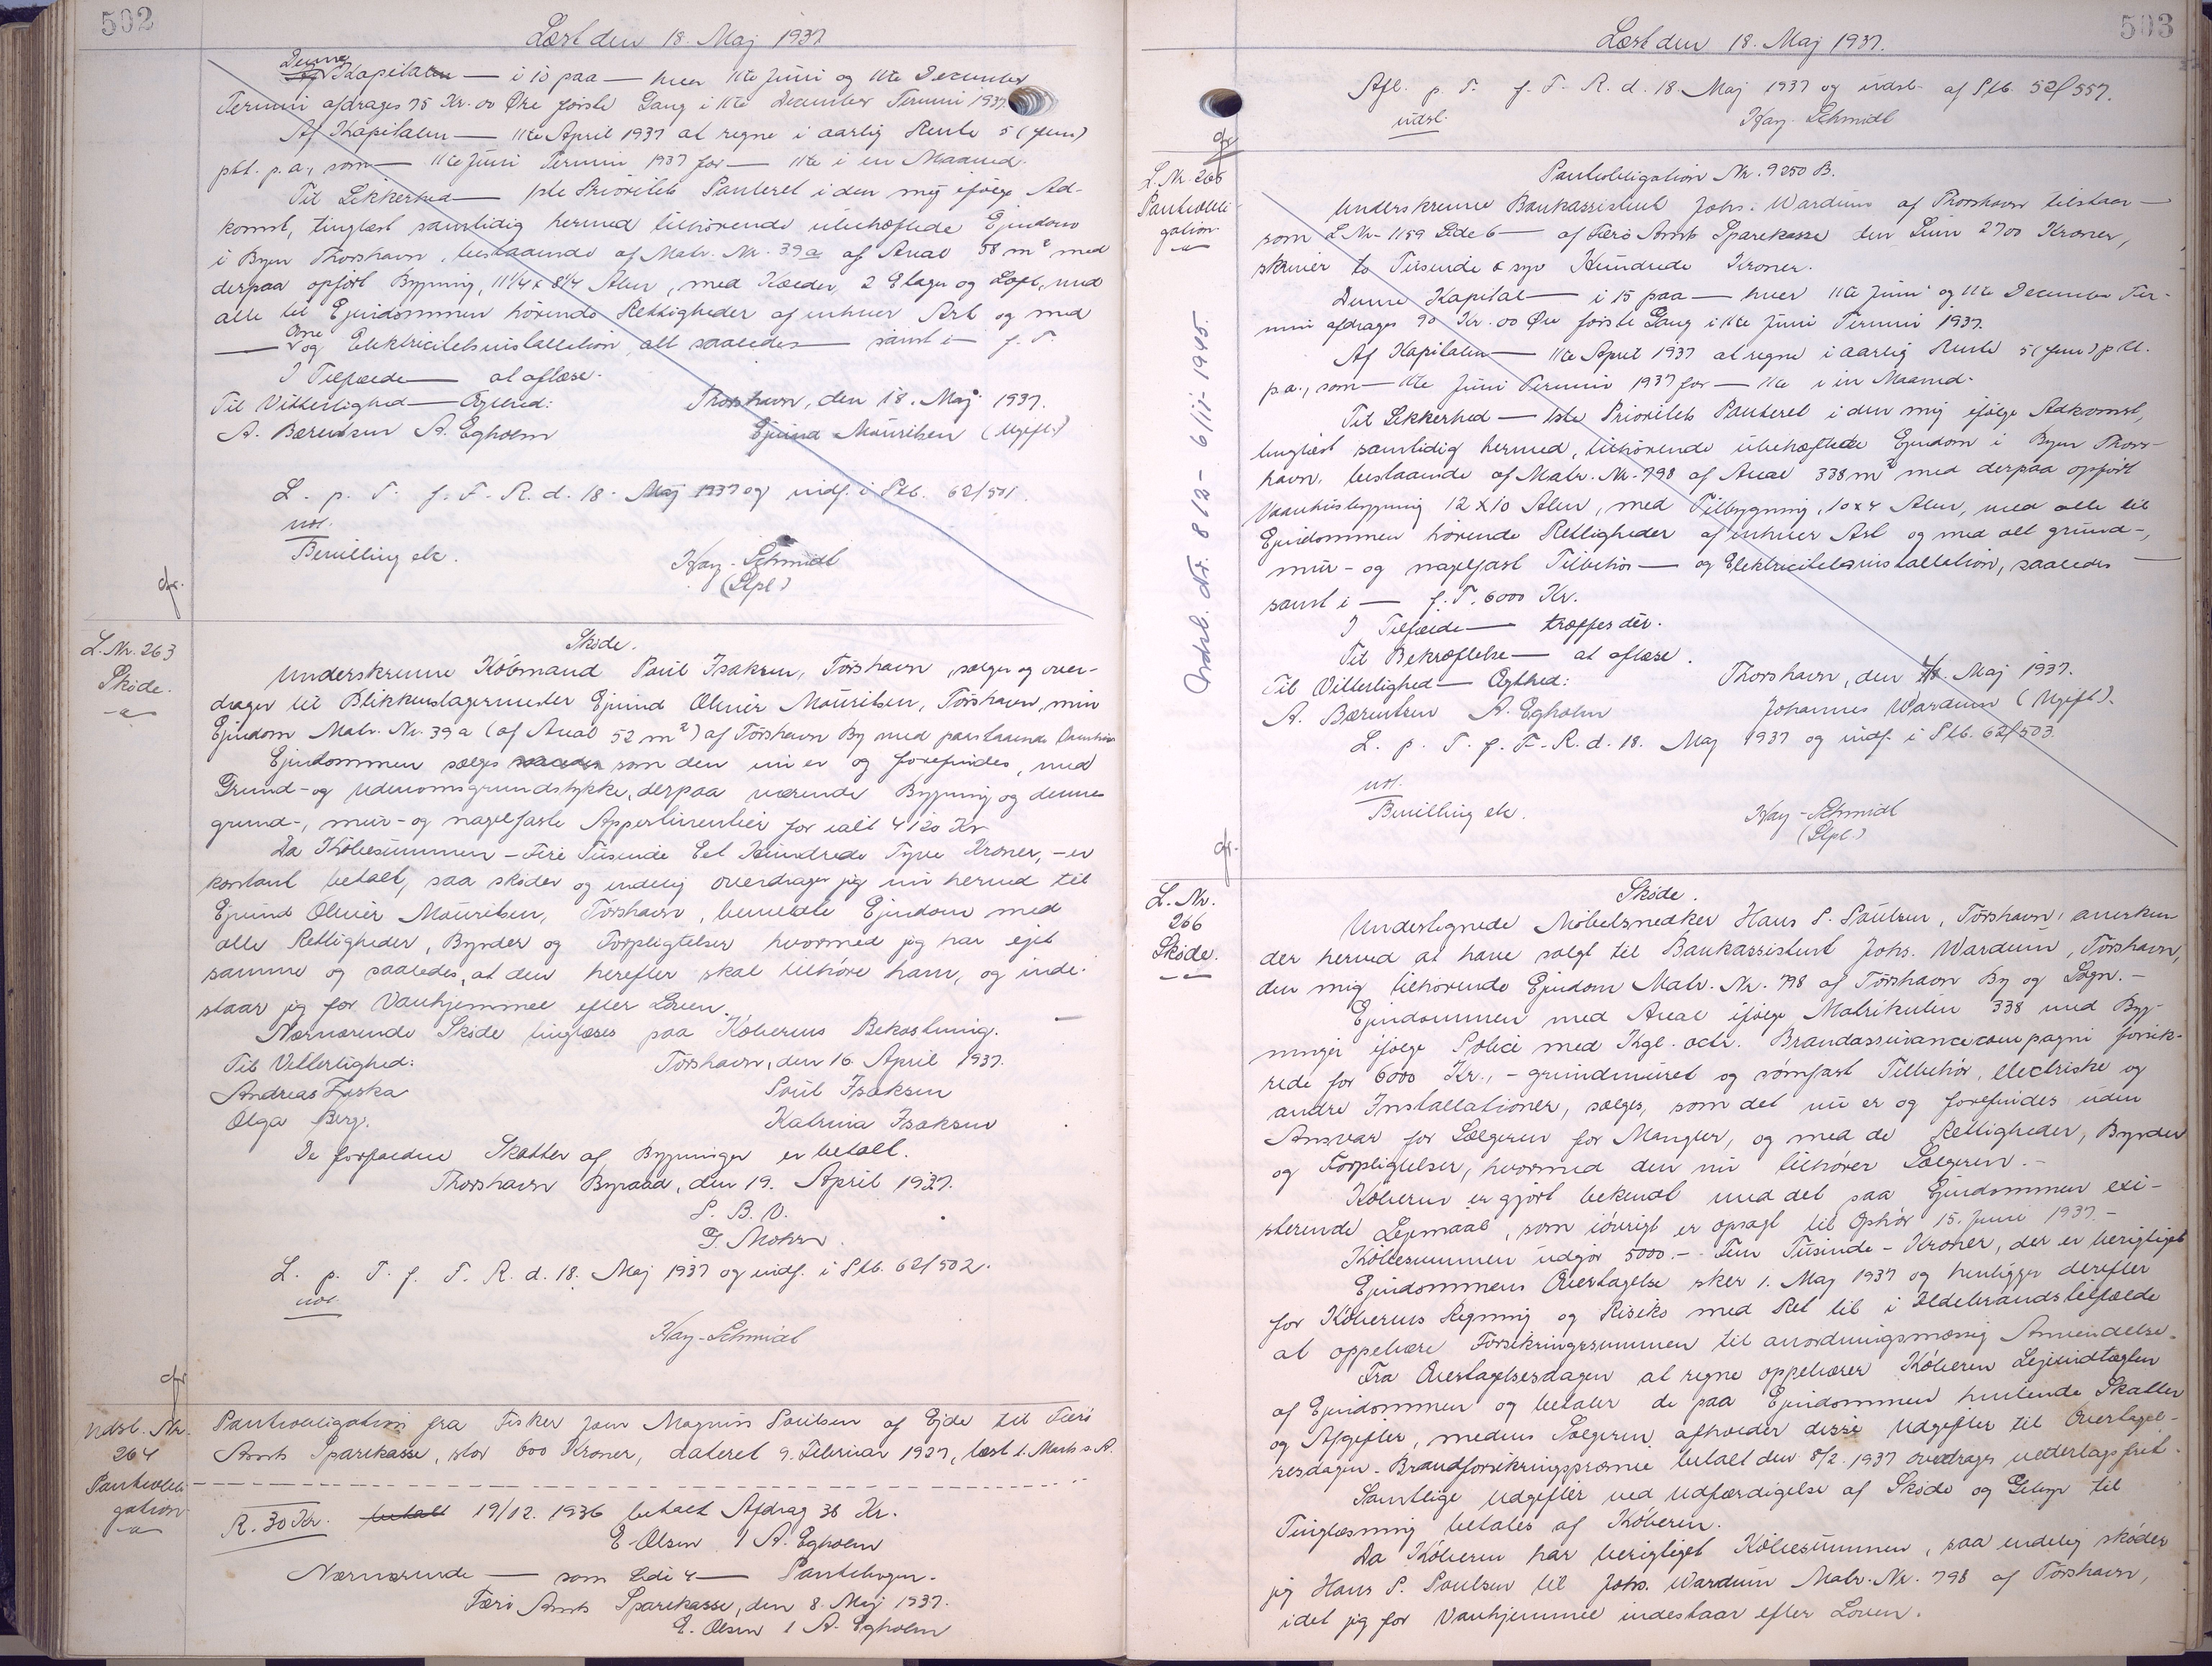 502
Læst den 18. Maj 1937
Denne
Kapital — i 10 paa — hver 11te Juni og 11te December
Termin afdrages 75 Kr. 00 Øre første Gang i 11te December Termin 1937.
Af Kapitalen — 11te April 1937 at regne i aarlig Rente 5 (fem)
pCt. p.a., som — 11te Juni Termin 1937 for — 11te i en Maaned.
Til Sikkerhed — 1ste Prioritets Panteret i den mig ifølge Ad-
komst, tinglæst samtidig hermed tilhørende ubehæftede Ejendom
i Byen Thorshavn, bestaaende af Matr. Nr. 39a af Areal 58 m² med
derpaa opført Bygning, 11 1/4 x 8 1/4 Alen, med Kælder, 2 Etager og Loft, med
alle til Ejendommen hørende Rettigheder af enhver Art og med
— og Elektricitetsinstallation, alt saaledes — samt i — f. T.
I Tilfælde — at aflæse.
Til Vitterlighed — Ægthed:
Thorshavn, den 18. Maj 1937.
A. Bærentsen A. Egholm
Ejvind Mouritsen (Ugift)
L. p. T. f. F. R. d. 18. Maj 1937 og indf. i Ptb. 62/501.
not.
Bevilling etc.
Kay-Schmidt
(Stpl.)
cfr.
L. Nr. 263
Skøde.
Skøde.
Underskrevne Købmand Poul Isaksen, Tórshavn, sælger og over-
drager til Blikkenslagermester Ejvind Oliver Mouritsen, Tórshavn, min
Ejendom Matr. Nr. 39a (af Areal 52 m²) af Tórshavn By med paastaaende Vaanhus
Ejendommen sælges som den nu er og forefindes, med
Grund- og Udenomsgrundstykke, derpaa værende Bygning og dennes
grund-, mur- og nagelfaste Appertinentier for ialt 4120 Kr
Da Købesummen - Fire Tusinde Eet Hundrede Tyve Kroner, - er
kontant betalt, saa skøder og endelig overdrager jeg nu hermed til
Ejvind Oliver Mouritsen, Tórshavn, benævnte Ejendom med
alle Rettigheder, Byrder og Forpligtelser hvormed jeg har ejet
samme og saaledes, at den herefter skal tilhøre ham, og inde-
staar jeg for Vanhjemmel efter Loven.
Nærværende Skøde tinglæses paa Køberens Bekostning.
Til Vitterlighed:
Tórshavn, den 16. April 1937.
Andreas Ziska
Poul Isaksen
Olga Berg.
Katrina Isaksen
De forfaldne Skatter af Bygninger er betalt.
Thorshavn Byraad, den 19. April 1937.
P. B. V.
G. Mohr.
L. p. T. f. F. R. d. 18. Maj 1937 og indf. i Ptb. 62/502.
not.
Kay-Schmidt
cfr
Udsl. Nr.
264
Pantobli-
gation
Pantobligation fra Fisker Joen Magnus Poulsen af Ejde til Færø
Amts Sparekasse, stor 600 Kroner, dateret 9. Februar 1927, læst 1. Marts s.A.
R. 30 Kr. betalt 19/12. 1936 betalt Afdrag 36 Kr.
E Olsen / A. Egholm
Nærværende — som Side 4 — Pantebogen.
Færø Amts Sparekasse, den 8. Maj 1937.
E. Olsen / A. Egholm
503
Læst den 18. Maj 1937.
Afl. p. T. f. F. R. d. 18. Maj 1937 og udsl. af Ptb. 52/557.
udsl.
Kay-Schmidt
cfr
L. Nr. 265
Pantobli-
gation
Udsl. Nr. 812 - 6/11-1945.
Pantobligation Nr. 9250 B.
Underskrevne Bankassistent Johs. Wardum af Thorshavn tilstaar —
som L Nr. 1159 Side 6 — af Færø Amts Sparekasse den Sum 2700 Kroner,
skriver to Tusinde & syv Hundrede Kroner.
Denne Kapital — i 15 paa — hver 11te Juni og 11te December Ter-
min afdrages 90 Kr. 00 Øre første Gang i 11te Juni Termin 1937.
Af Kapitalen — 11te April 1937 at regne i aarlig Rente 5 (fem) pCt.
p.a., som — 11te Juni Termin 1937 for — 11te i en Maaned.
Til Sikkerhed — 1ste Prioritets Panteret i den mig ifølge Adkomst,
tinglæst samtidig hermed, tilhørende ubehæftede Ejendom i Byen Thors-
havn, bestaaende af Matr. Nr. 798 af Areal 338 m² med derpaa opført
Vaanhusbygning 12 x 10 Alen, med Tilbygning, 10 x 4 Alen, med alle til
Ejendommen hørende Rettigheder af enhver Art og med alt grund-,
mur- og nagelfast Tilbehør — og Elektricitetsinstallation, saaledes —
samt i — f. T. 6000 Kr.
I Tilfælde — træffes der.
Til Bekræftelse — at aflæse.
Til Vitterlighed — Ægthed:
Thorshavn, den 18. Maj 1937.
A. Bærentsen A. Egholm
Johannes Wardum (Ugift).
L. p. T. f. F. R. d. 18. Maj 1937 og indf. i Ptb. 62/503.
not.
Bevilling etc.
Kay-Schmidt
(Stpl.)
cfr.
L. Nr.
266
Skøde.
Skøde.
Undertegnede Møbelsnedker Hans P. Poulsen, Tórshavn, anerken
der herved at have solgt til Bankassistent Johs. Wardum, Tórshavn,
den mig tilhørende Ejendom Matr. Nr. 798 af Tórshavn By og Sogn. -
Ejendommen med Areal ifølge Matrikulen 338 med Byg-
ninger ifølge Police med Kgl. octr. Brandassurancecompagni forsik-
rede for 6000 Kr., - grundmuret og sømfast Tilbehør, electriske og
andre Installationer, sælges, som det nu er og forefindes uden
Ansvar for Sælgeren for Mangler, og med de Rettigheder, Byrder
og Forpligtelser, hvormed den nu tilhører Sælgeren. -
Køberen er gjort bekendt med det paa Ejendommen exi-
sterende Lejemaal, som iøvrigt er opsagt til Ophør 15. Juni 1937. -
Købesummen udgør 5000.- Fem Tusinde - Kroner, der er berigtiget
Ejendommens Overtagelse sker 1. Maj 1937 og henligger derefter
for Køberens Regning og Risiko med Ret til i Ildebrandstilfælde
at oppebære Forsikringssummen til anordningsmæssig Anvendelse.
Fra Overtagelsesdagen at regne oppebærer Køberen Lejeindtægten
af Ejendommen og betaler de paa Ejendommen hvilende Skatter
og Afgifter, medens Sælgeren afholder disse Udgifter til Overtagel-
sesdagen. Brandforsikringspræmie betalt den 8/2. 1937 overdrages vederlagsfrit.
Samtlige Udgifter ved Udfærdigelse af Skøde og Gebyr til
Tinglæsning betales af Køberen.
Da Køberen har berigtiget Købesummen, saa endelig skøder
jeg Hans P. Poulsen til Johs. Wardum Matr. Nr. 798 af Tórshavn,
idet jeg for Vanhjemmel indestaar efter Loven.